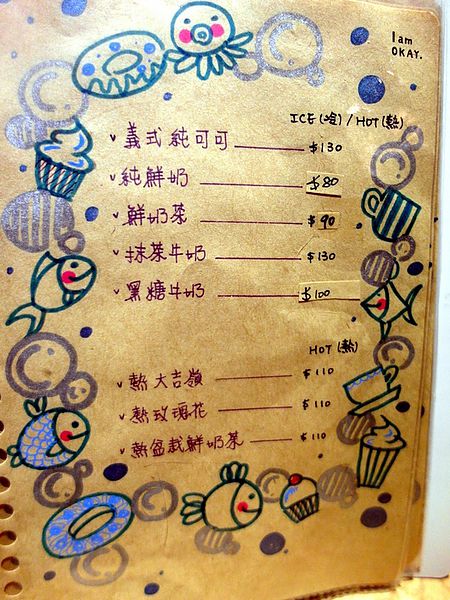 I am
OKAY.
ICE(冷) / HOT(熱)
義式純可可 $130
純鮮奶 $80
鮮奶茶 $90
抹茶牛奶 $130
黑糖牛奶 $100
HOT(熱)
熱大吉嶺 $110
熱玫瑰花 $110
熱盆栽鮮奶茶 $110